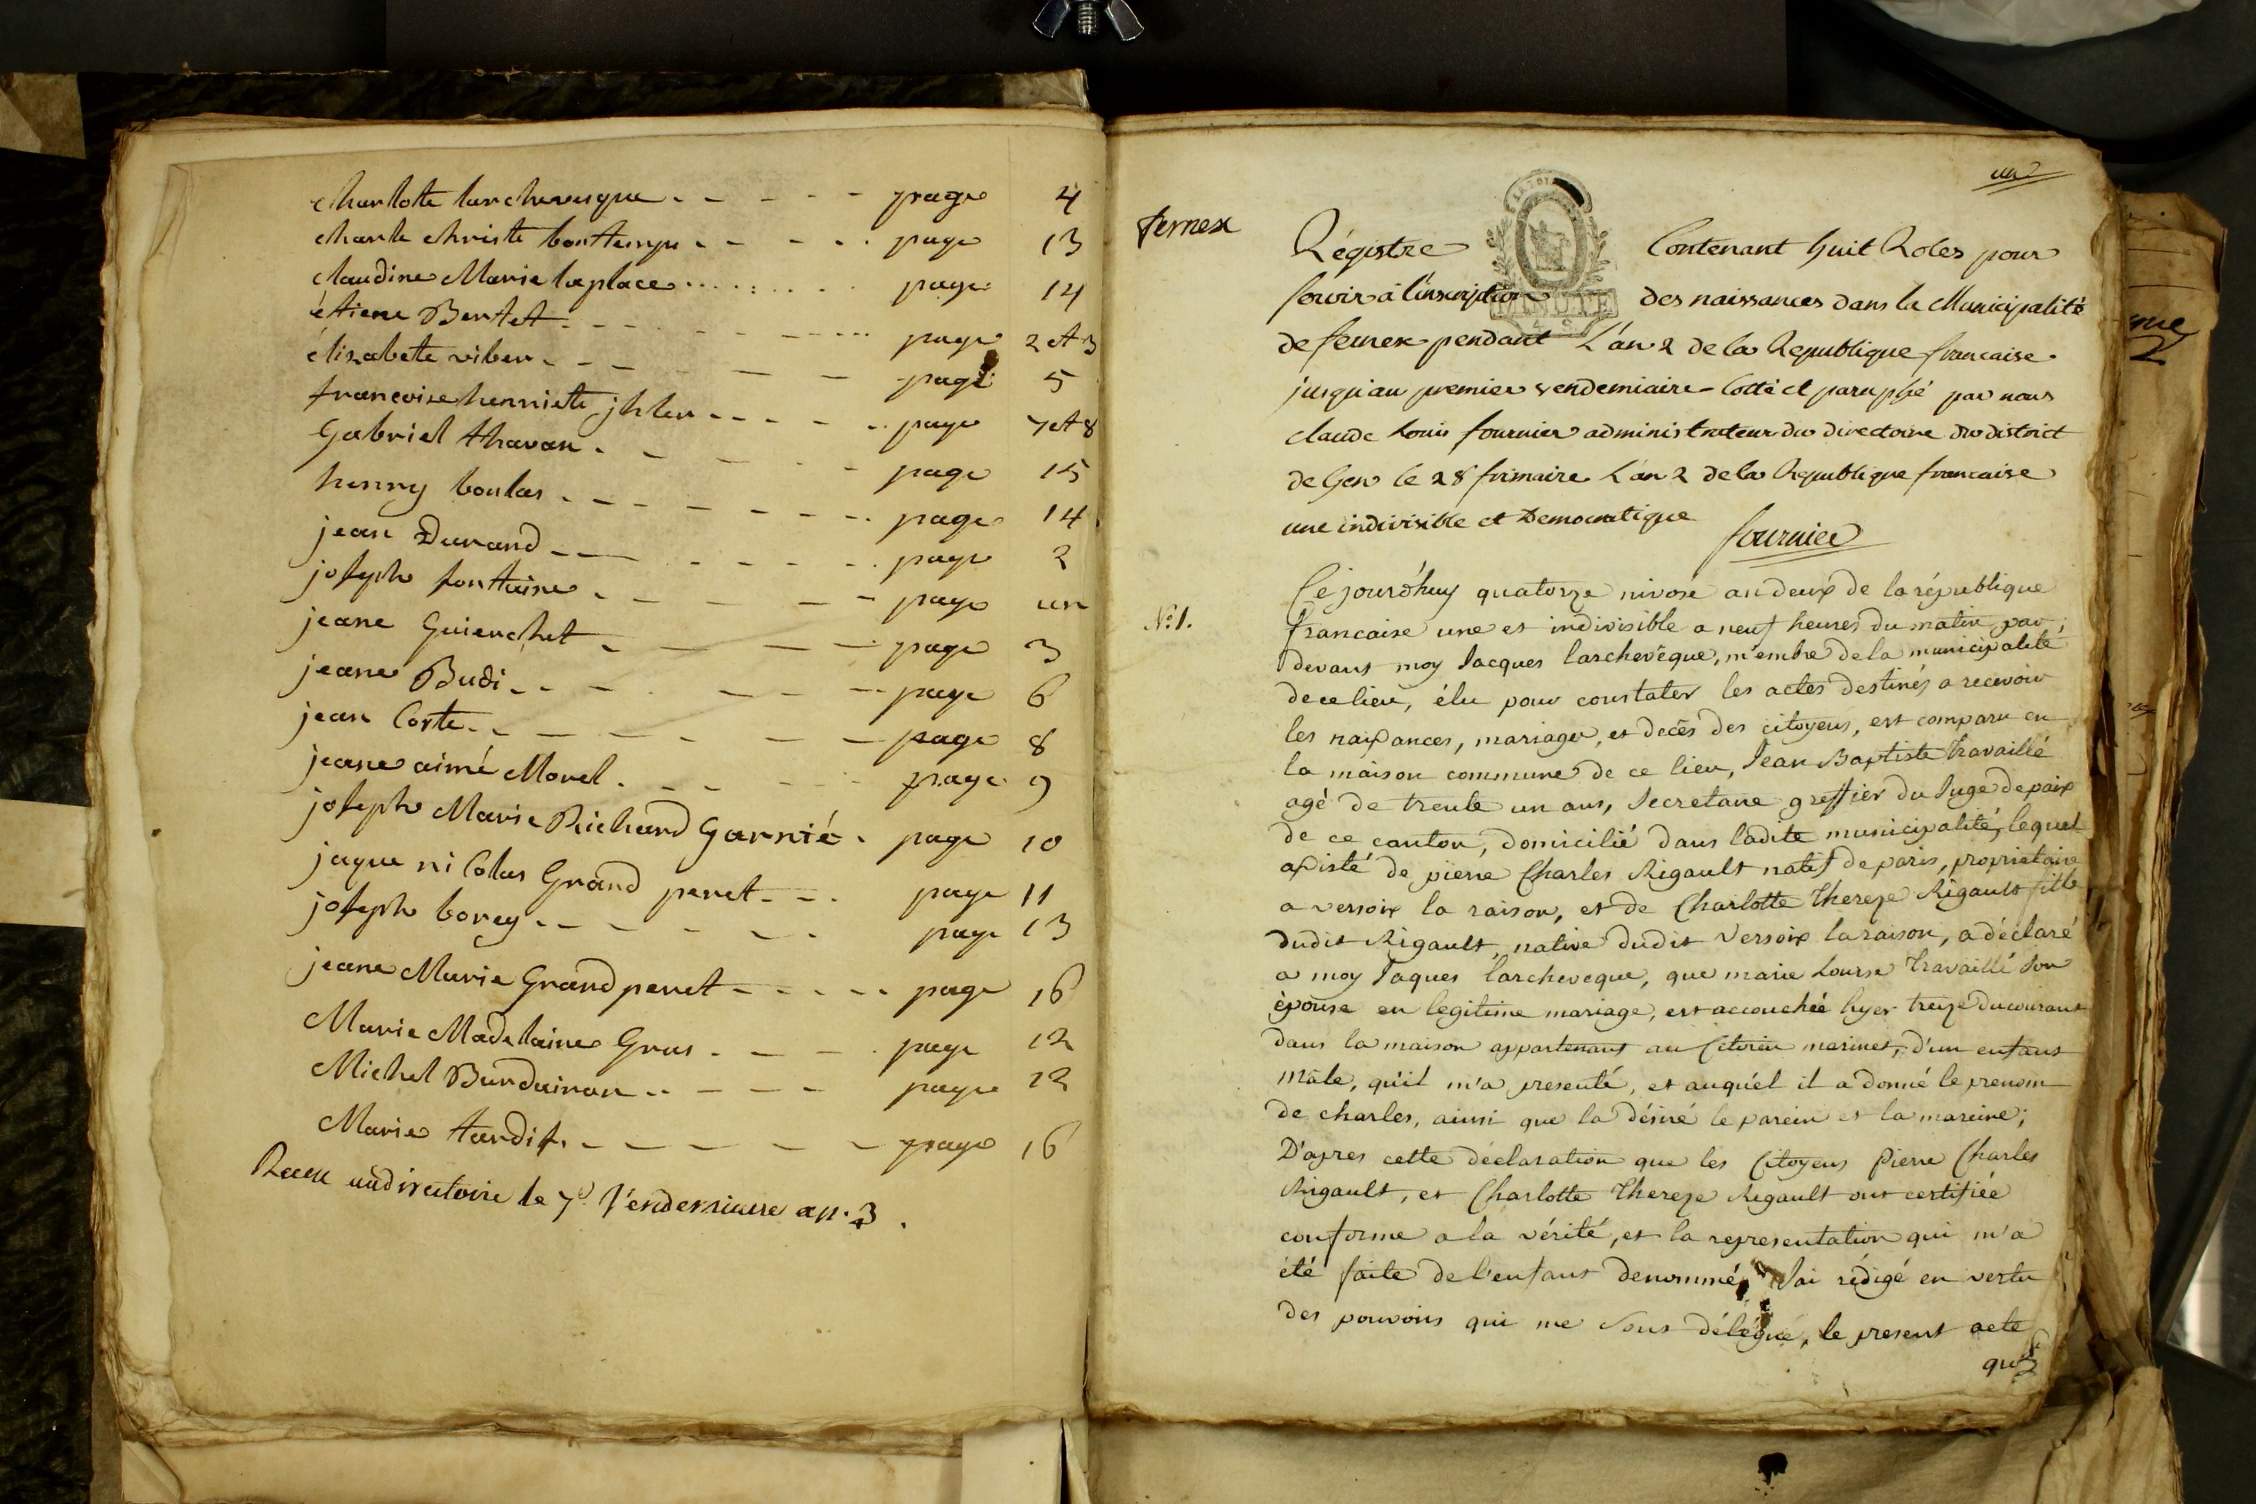 charlotte larchevesque - - - - - page 4
charle christe bontemps - - - - - page 13
claudine Marie laplace . . . . . . . page 14
étiene Bertet - - - - - - page 2 et 3
élizabete viber - - - - - - page 5
francoise henriete jhler - - - - - page 7 et 8
Gabriel tharan - - - - - page 15
henry boulas - - - - - - page 14
jean Durand - - - - - - page 2
joseph fontaine - - - - - page un
jeane Guienchet - - - - - page 3
jeane Budi - - - - - - page 6
jean Coste - - - - - - page 8
jeane aimé Morel - - - - - page 9
joseph Marie Richard Garnié . page 10
jaque nicolas Grand peret - - - page 11
joseph borey - - - - - - page 13
jeane Marie Grand peret - - - - - page 16
Marie Madelaine Gras - - - - page 12
Michel Burdairon - - - - - page 12
Marie tardif - - - - - - page 16
Recu audirectoire le 7e Vendemiaire an 3 .
un
fernex
MINUTE
Régistre Contenant huit Roles pour
servir a l'inscription des naissances dans la Municipalité
de fernex pendant L'an 2 de la Republique francaise
jusqu'au premier vendemiaire - Cotté et paraphé par nous
claude Louis fournier administrateur du directoire du district
de Gex le 28 frimaire L'an 2 de la Republique francaise
une indivisible et Democratique
fournier
N.º 1.
Cé jourd'huy quatorze nivose an deux de la république
francaise une et indivisible a neuf heures du matin par
devant moy Jacques larchevêque, membre de la municipalité
de ce lieu, élu pour constater les actes destinés a recevoir
les naissances, mariages, et decès des citoyens, est comparu en
la maison commune de ce lieu, Jean Baptiste Travaillé
agé de trente un ans, secretaire greffier du Juge de paix
de ce canton, domicilié dans ladite municipalité, lequel
assisté de pierre Charles Rigault natif de paris, propriétaire
a versoix la raison, et de Charlotte Thereze Rigault fille
dudit Rigault, native dudit Versoix la raison, a déclaré
a moy Jaques larcheveque, que marie Louise Travaillé son
épouse en legitime mariage, est accouchée hyer treize ducourant
dans la maison appartenant au Citoien marinet, d'un enfant
mâle, qu'il m'a presenté, et auquel il a donné le prenom
de charles, ainsi que la désiré le parein et la mareine;
D'apres cette déclaration que les Citoyens Pierre Charles
Rigault, et Charlotte Thereze Rigault ont certifiée
conforme a la vérité, et la representation qui m'a
été faite de l'enfant denommé, J'ai rédigé en vertu
des pouvoirs qui me sont délégué, le present acte
que